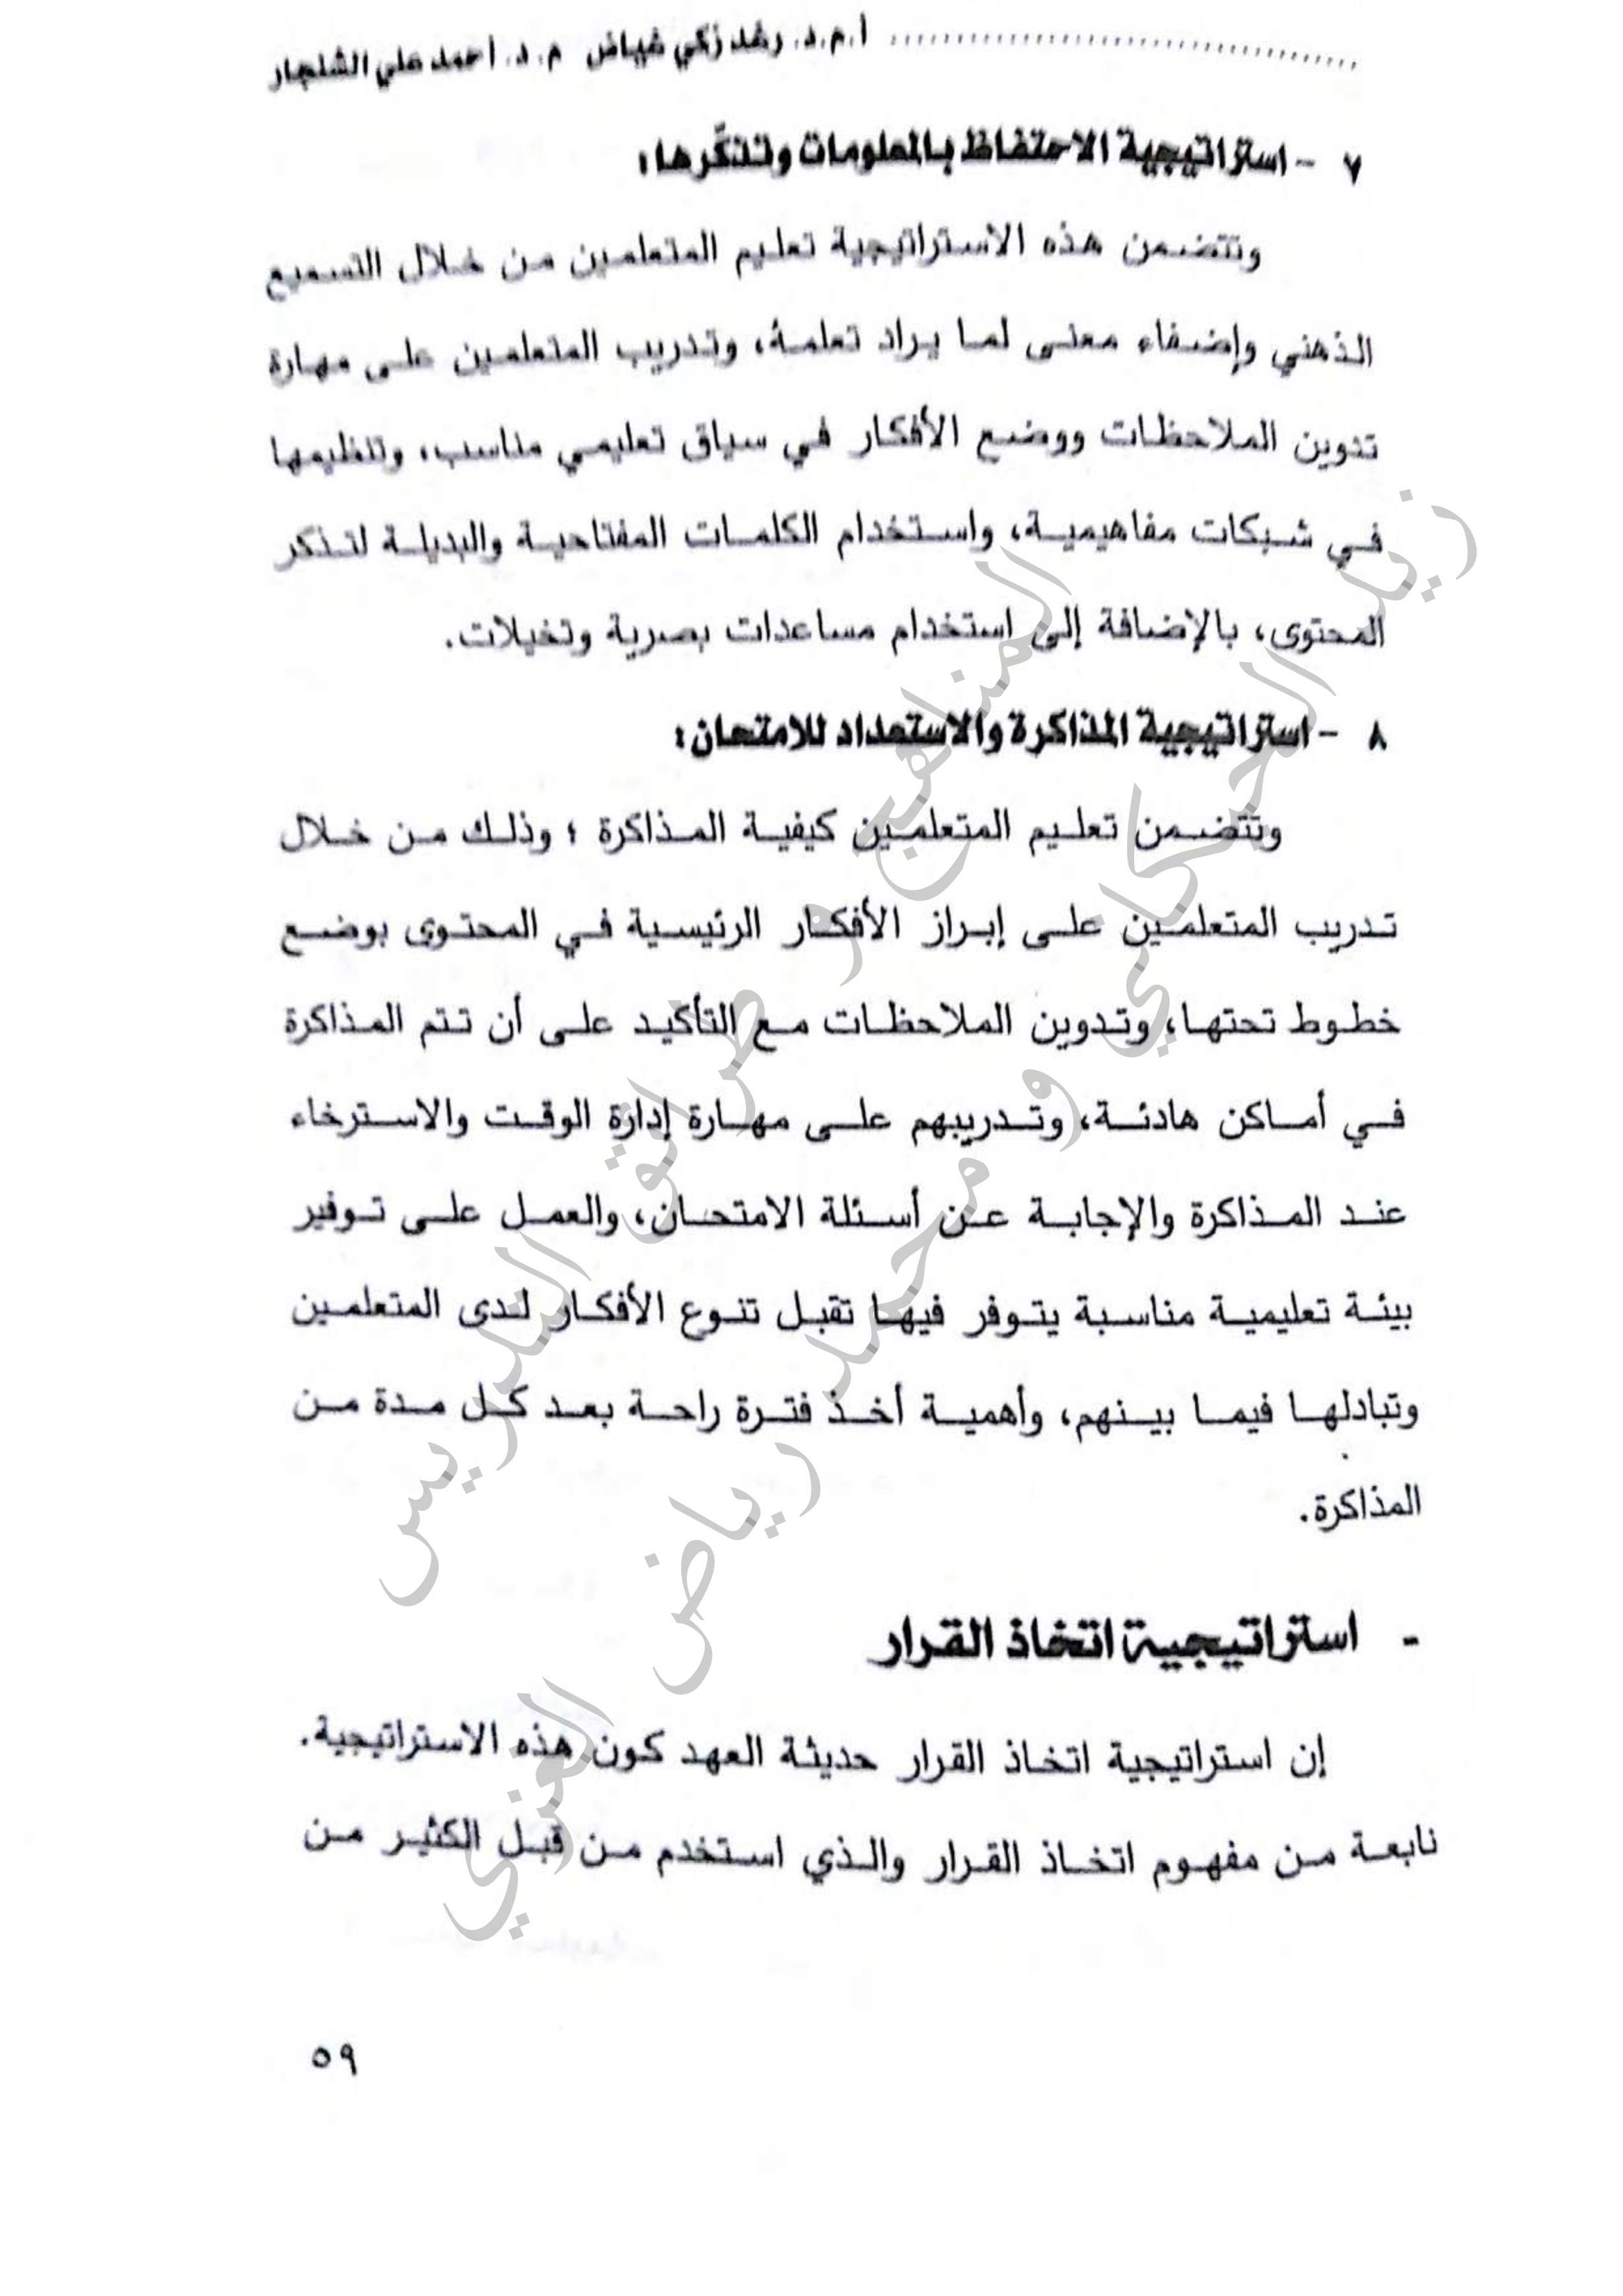 أ.م.د. رغد زكي غياض م.د. أحمد علي الشلجار
٧ - استراتيجية الاحتفاظ بالمعلومات وتذكّرها:
وتتضمن هذه الاستراتيجية تعليم المتعلمين من خلال التسميع
الذهني وإضفاء معنى لما يراد تعلمهُ، وتدريب المتعلمين على مهارة
تدوين الملاحظات ووضع الأفكار في سياق تعليمي مناسب، وتنظيمها
في شبكات مفاهيمية، واستخدام الكلمات المفتاحية والبديلة لتذكر
المحتوى، بالإضافة إلى استخدام مساعدات بصرية وتخيلات.
٨ - استراتيجية المذاكرة والاستعداد للامتحان:
وتتضمن تعليم المتعلمين كيفية المذاكرة ؛ وذلك من خلال
تدريب المتعلمين على إبراز الأفكار الرئيسية في المحتوى بوضع
خطوط تحتها، وتدوين الملاحظات مع التأكيد على أن تتم المذاكرة
في أماكن هادئة، وتدريبهم على مهارة إدارة الوقت والاسترخاء
عند المذاكرة والإجابة عن أسئلة الامتحان، والعمل على توفير
بيئة تعليمية مناسبة يتوفر فيها تقبل تنوع الأفكار لدى المتعلمين
وتبادلها فيما بينهم، وأهمية أخذ فترة راحة بعد كل مدة من
المذاكرة.
- استراتيجية اتخاذ القرار
إن استراتيجية اتخاذ القرار حديثة العهد كون هذه الاستراتيجية.
نابعة من مفهوم اتخاذ القرار والذي استخدم من قبل الكثير من
٥٩
المناهج و طرائق التدريس
زيد الحكاني و محمد رياض العنزي